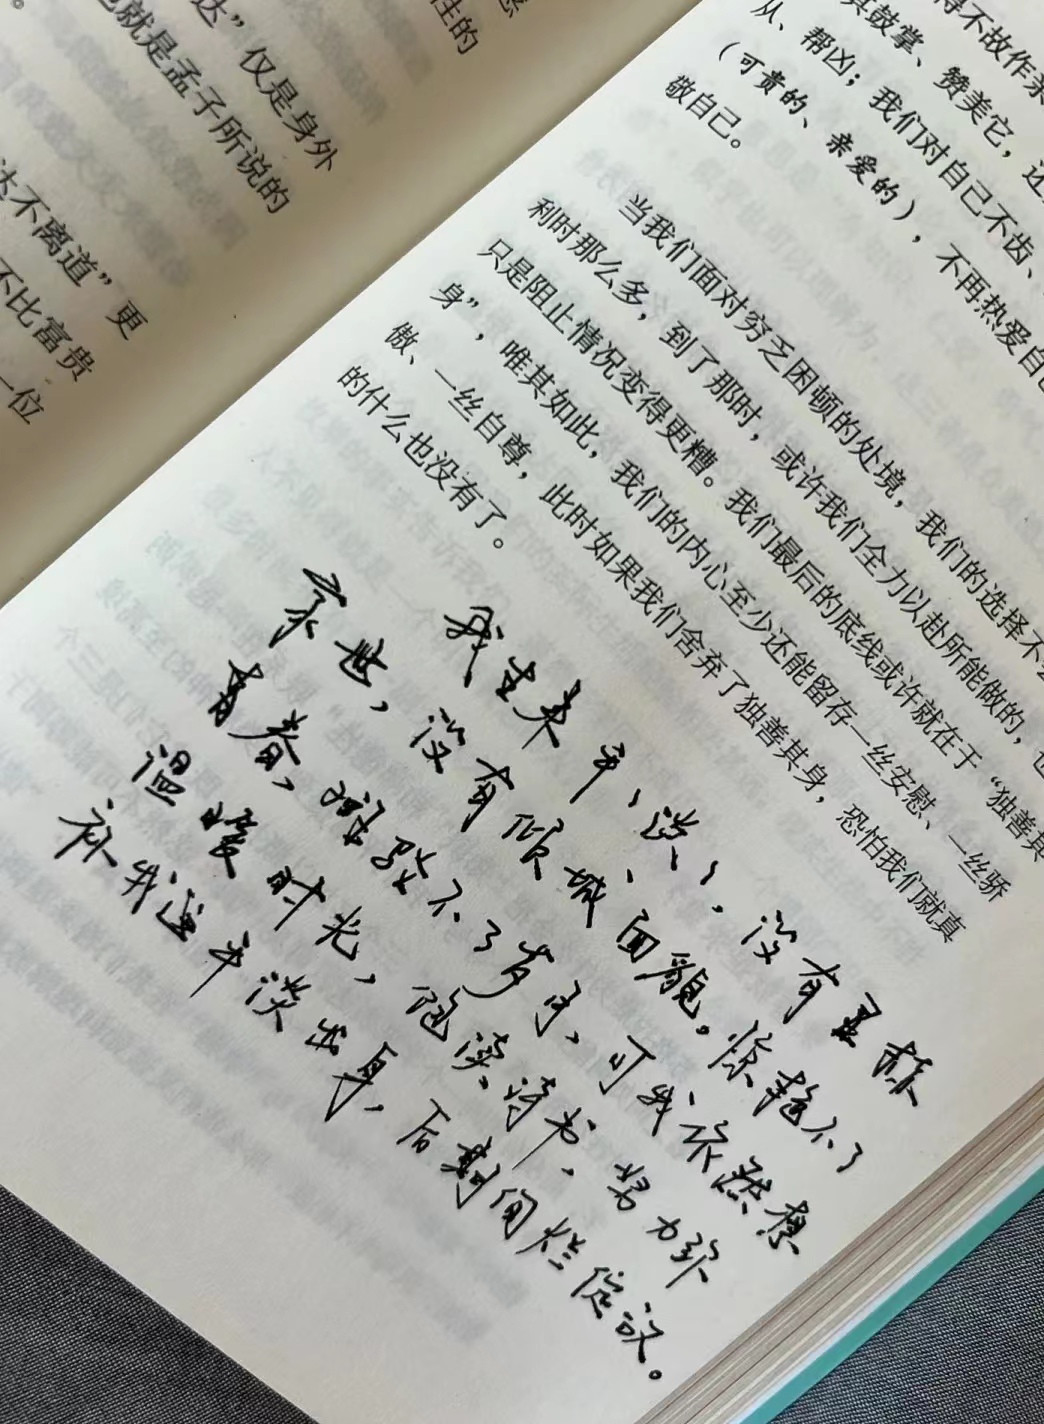 性的
达”仅是身外
也就是孟子所说的
达不离道”更
不比富贵
一位
得不故作亲
其鼓掌、赞美它，还
从、帮凶；我们对自己不齿、
（可贵的、亲爱的），不再热爱自己
敬自己。
当我们面对穷乏困顿的处境，我们的选择不
利时那么多，到了那时，或许我们全力以赴所能做的，也
只是阻止情况变得更糟。我们最后的底线或许就在于“独善其
身”，唯其如此，我们的内心至少还能留存一丝安慰、一丝骄
傲、一丝自尊，此时如果我们舍弃了独善其身，恐怕我们就真
的什么也没有了。
我生来平、淡、，没有显赫
家世，没有倾城面貌。惊艳不了
青春，斑驳不了岁月，可我依然想
温暖时光，饱读诗书，努力弥
补我这平淡出身，后期间烂